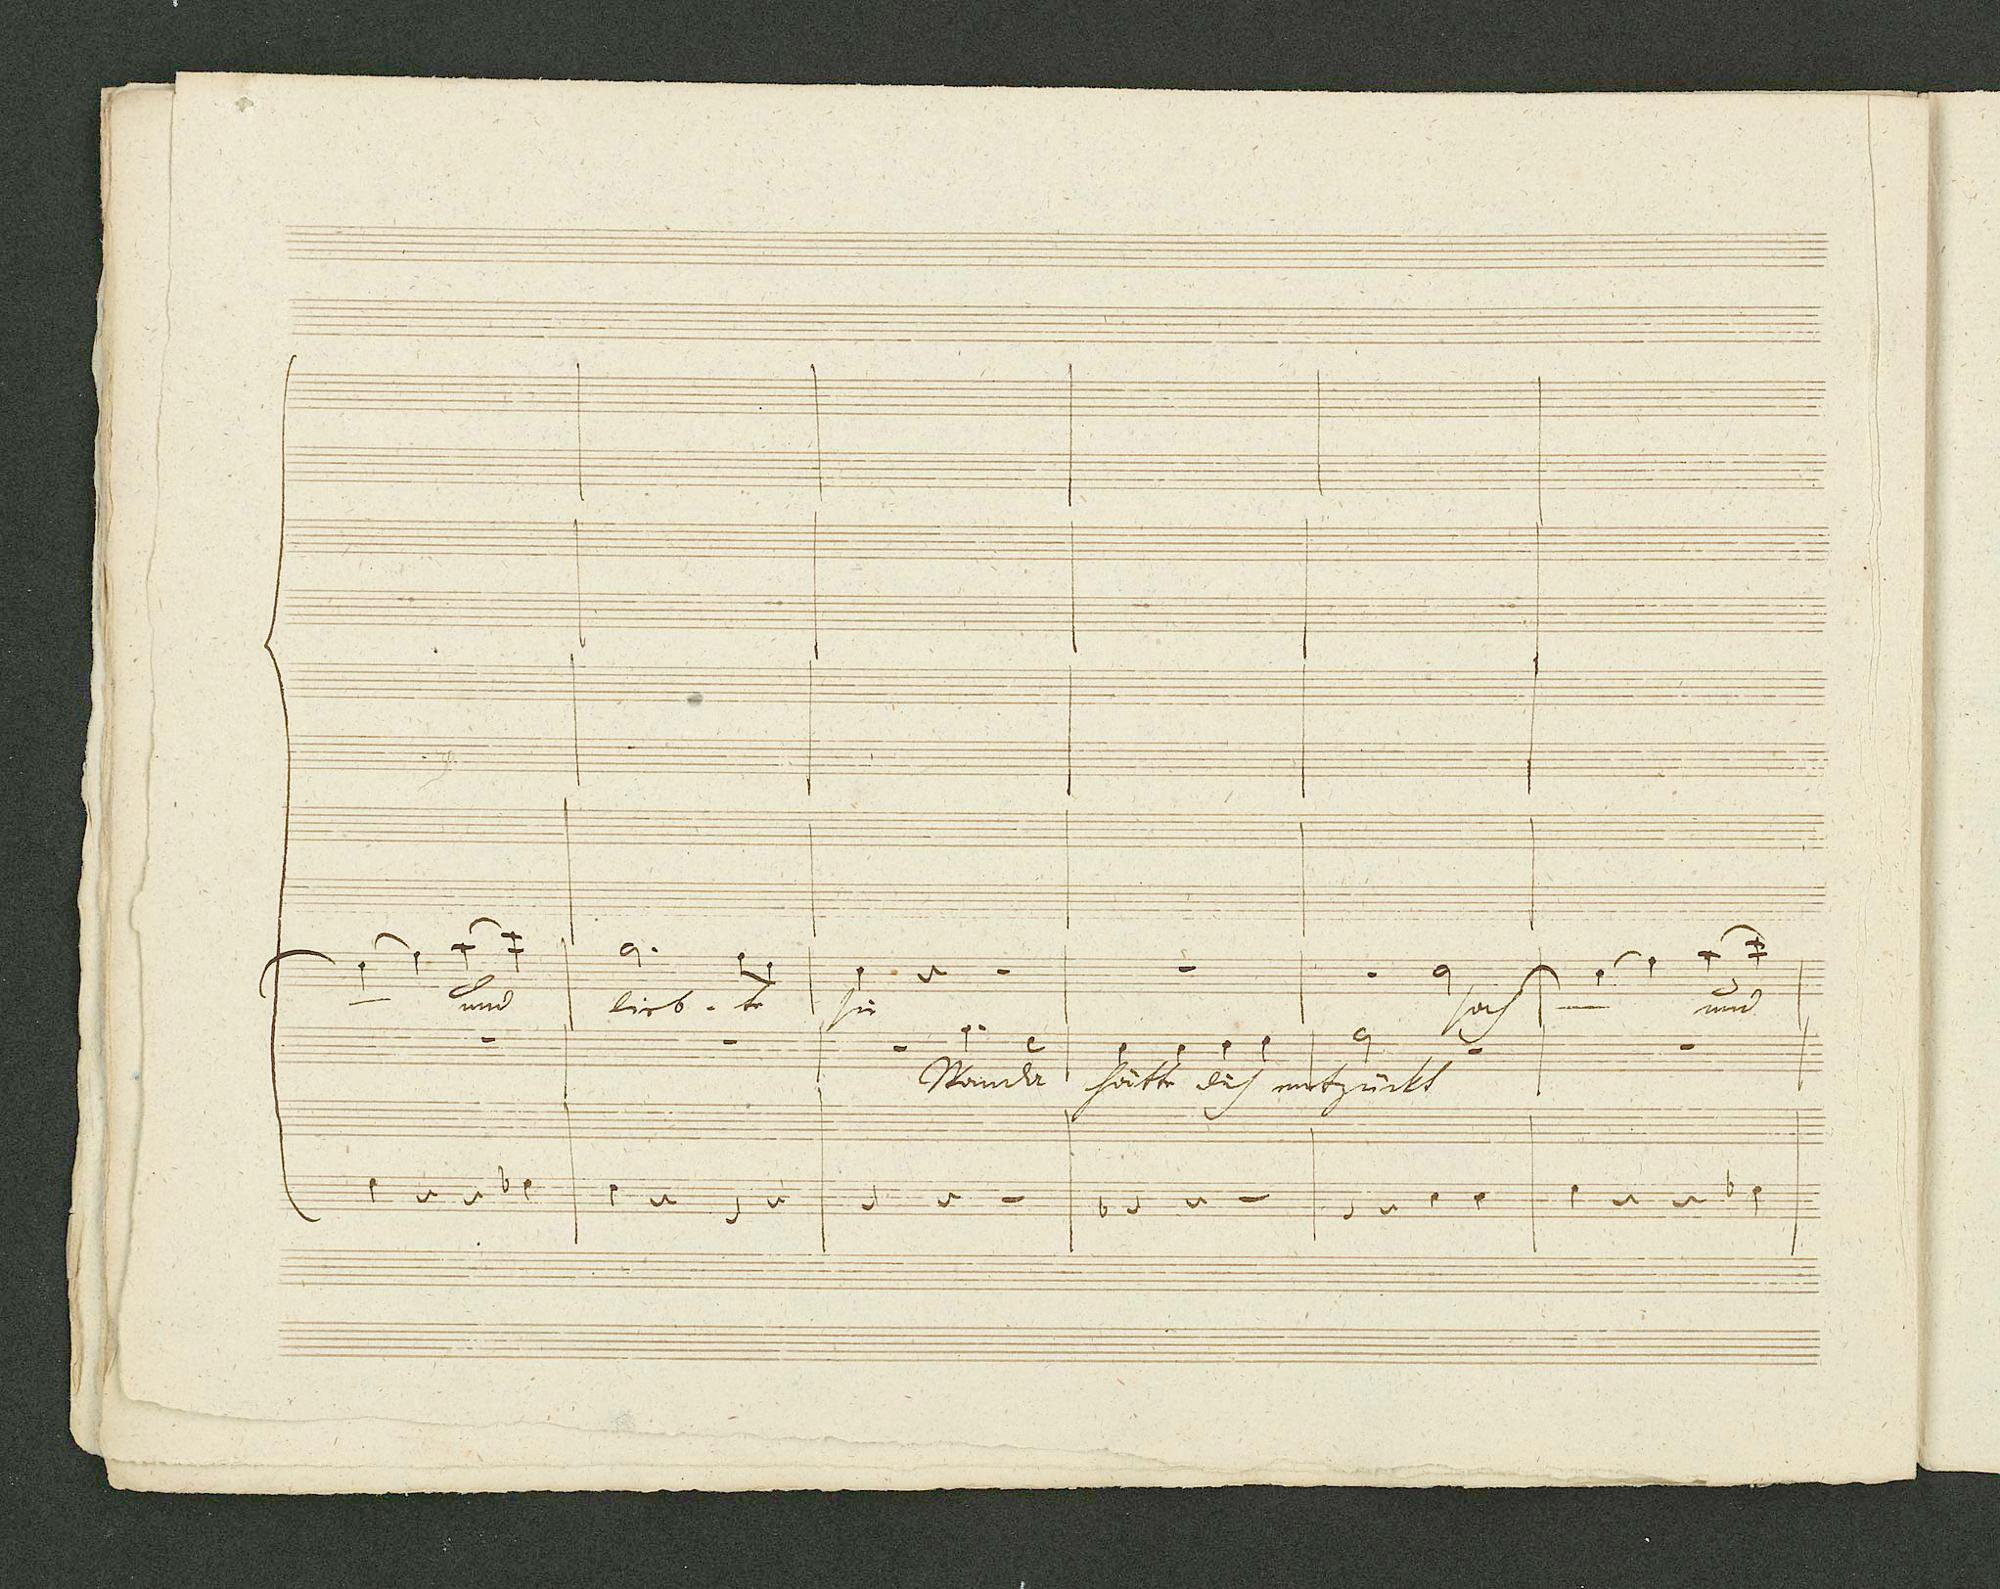 und lieb - te sie sah und
Wanda hätte dich entzückt